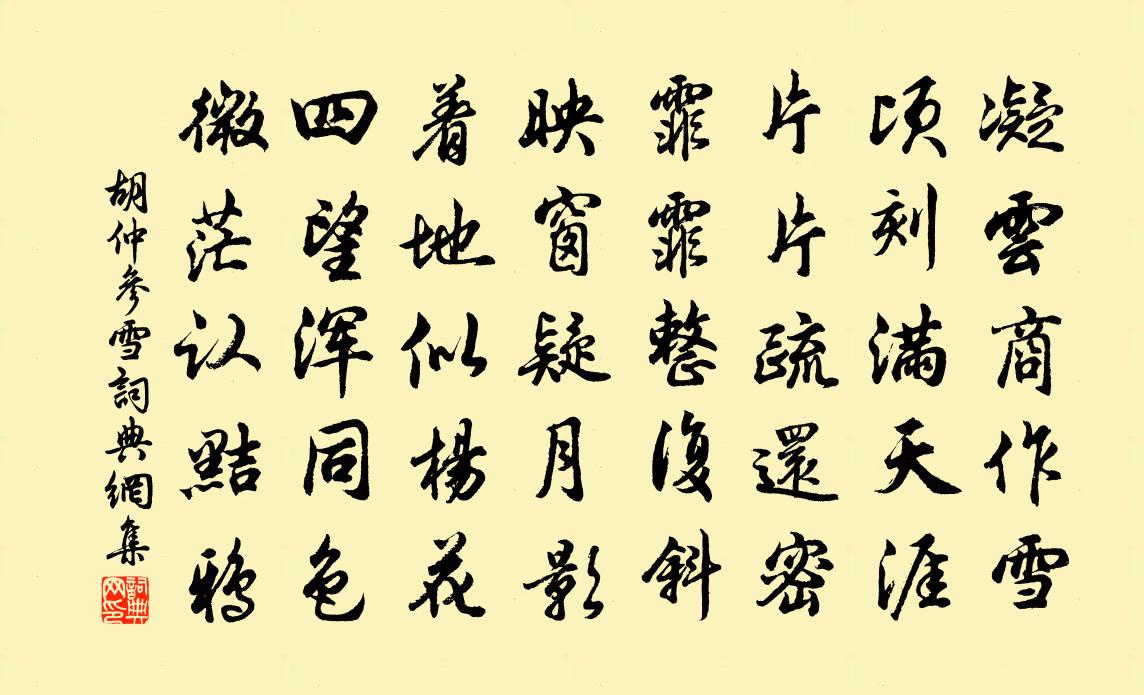 凝雲商作雪
顷刻滿天涯
片片疏還密
霏霏整復斜
映窗疑月影
着地似楊花
四望浑同色
微茫认黠鴉
胡仲參雪詞典網集
詞典
网印